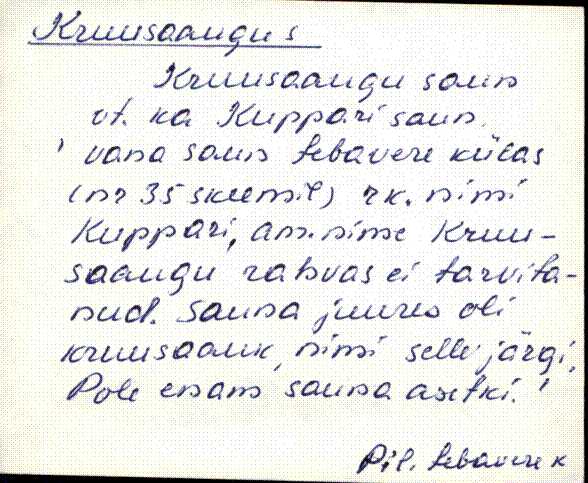 Kruusaangu s
Kruusaangu saun
vt. ka Kuppari saun.
' vana saun Lebavere külas
(nr 35 skeemil) rk. nimi
Kuppari, am. nime Kruu-
saangu rahvas ei tarvita-
nud. Sauna juures oli
kruusaauk, nimi selle järgi,
Pole enam sauna asetki. '
Pil. Lebavere k